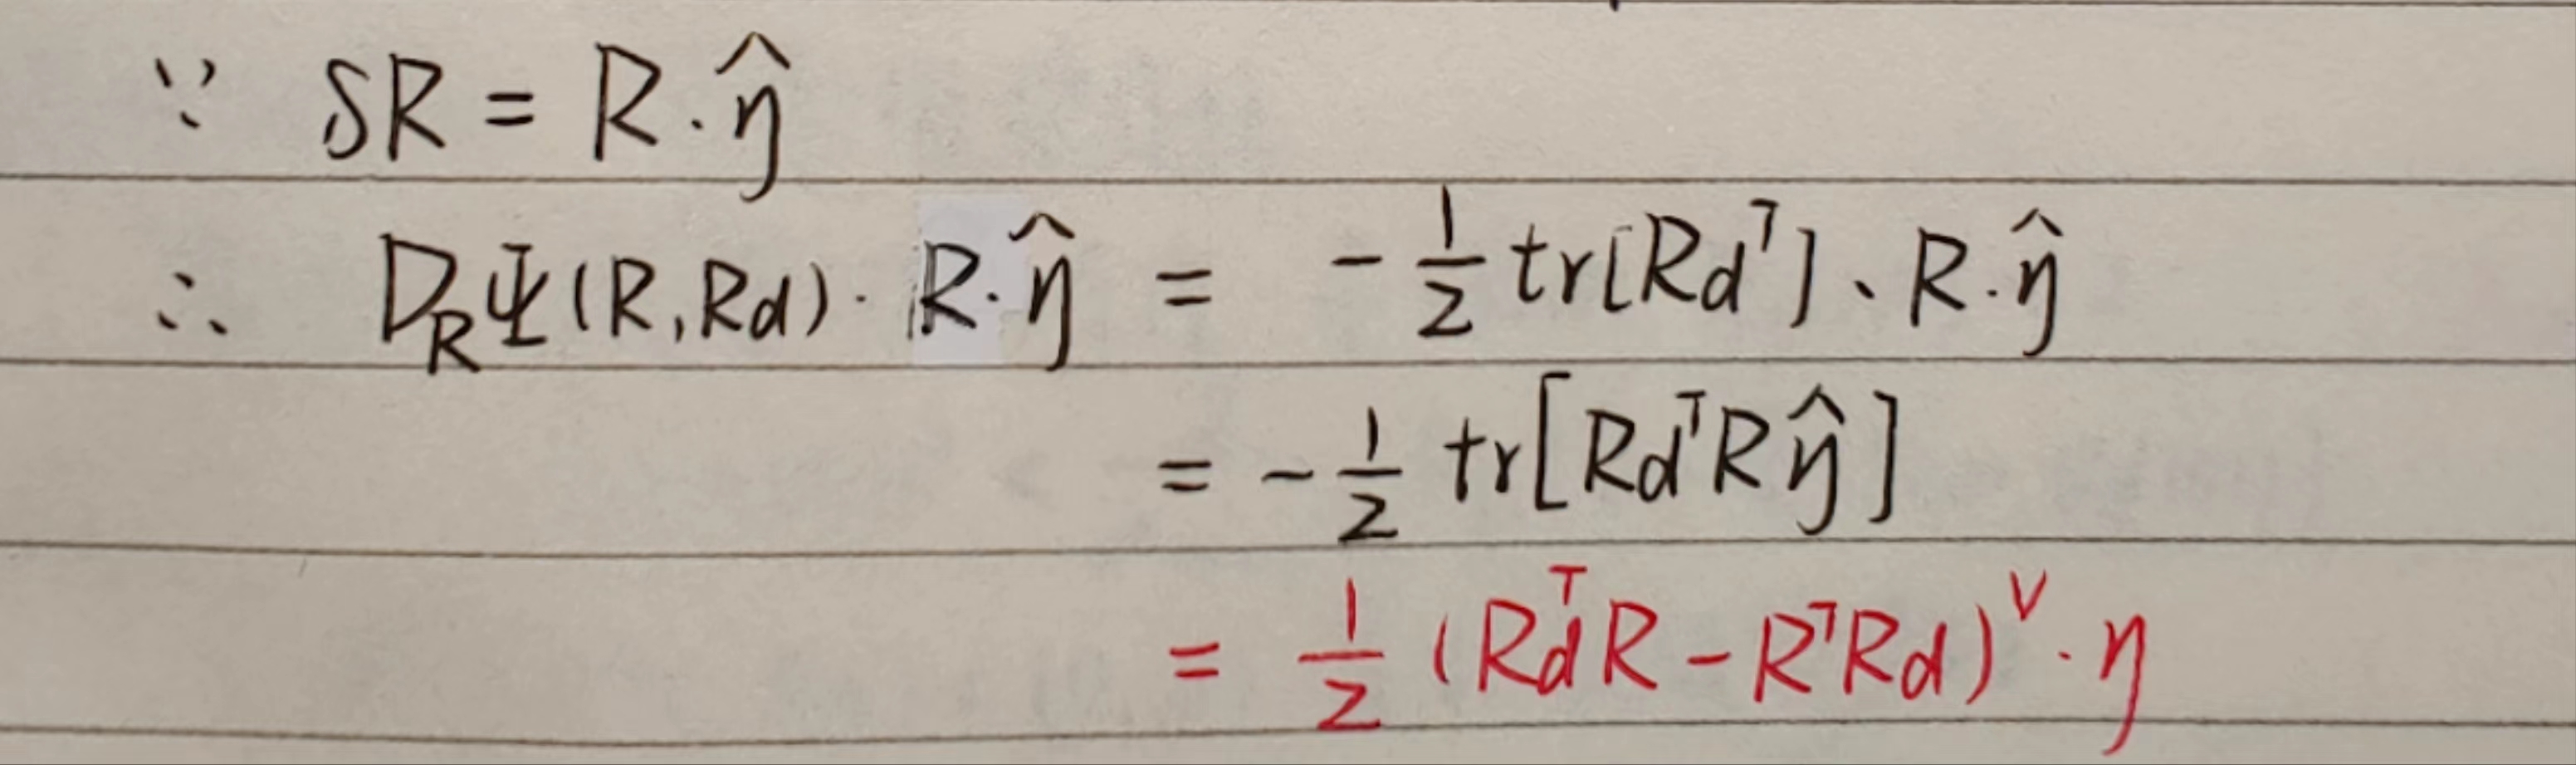 ∵ δR = R·η̂
∴ D_RΨ(R,Rd)· R·η̂ = -1/2 tr[Rd^T]、R·η̂
= -1/2 tr[Rd^T R η̂]
= 1/2 (Rd^T R - R^T Rd)^∨ · η